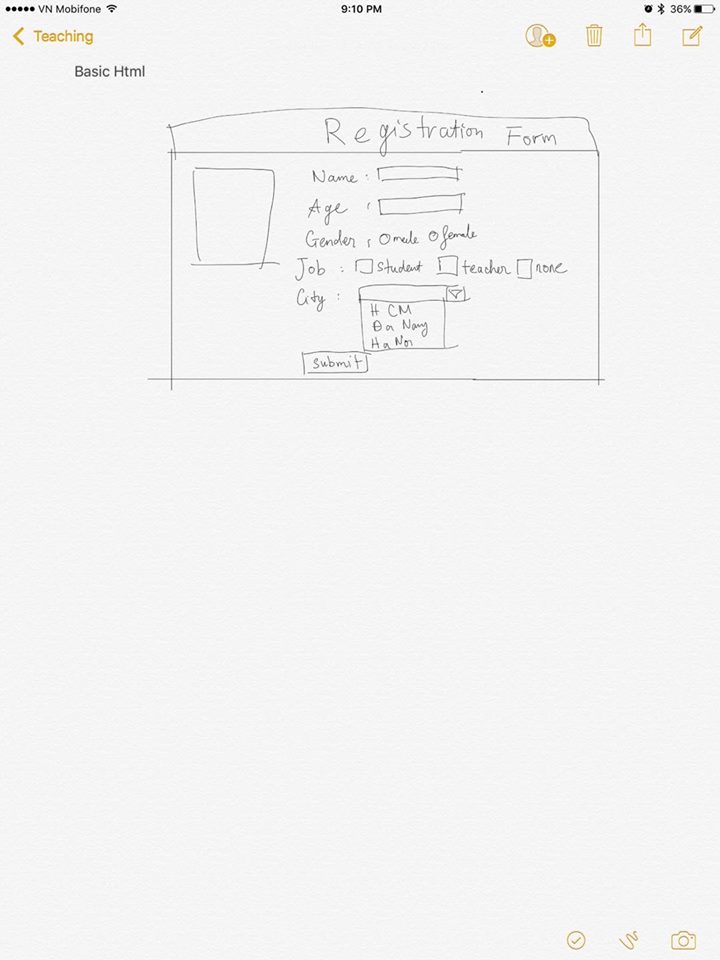 VN Mobifone 9:10 PM 36%
Teaching
Basic Html
Registration Form
Name :
Age :
Gender : male female
Job : student teacher none
City :
H CM
Đa Nang
Ha Noi
submit